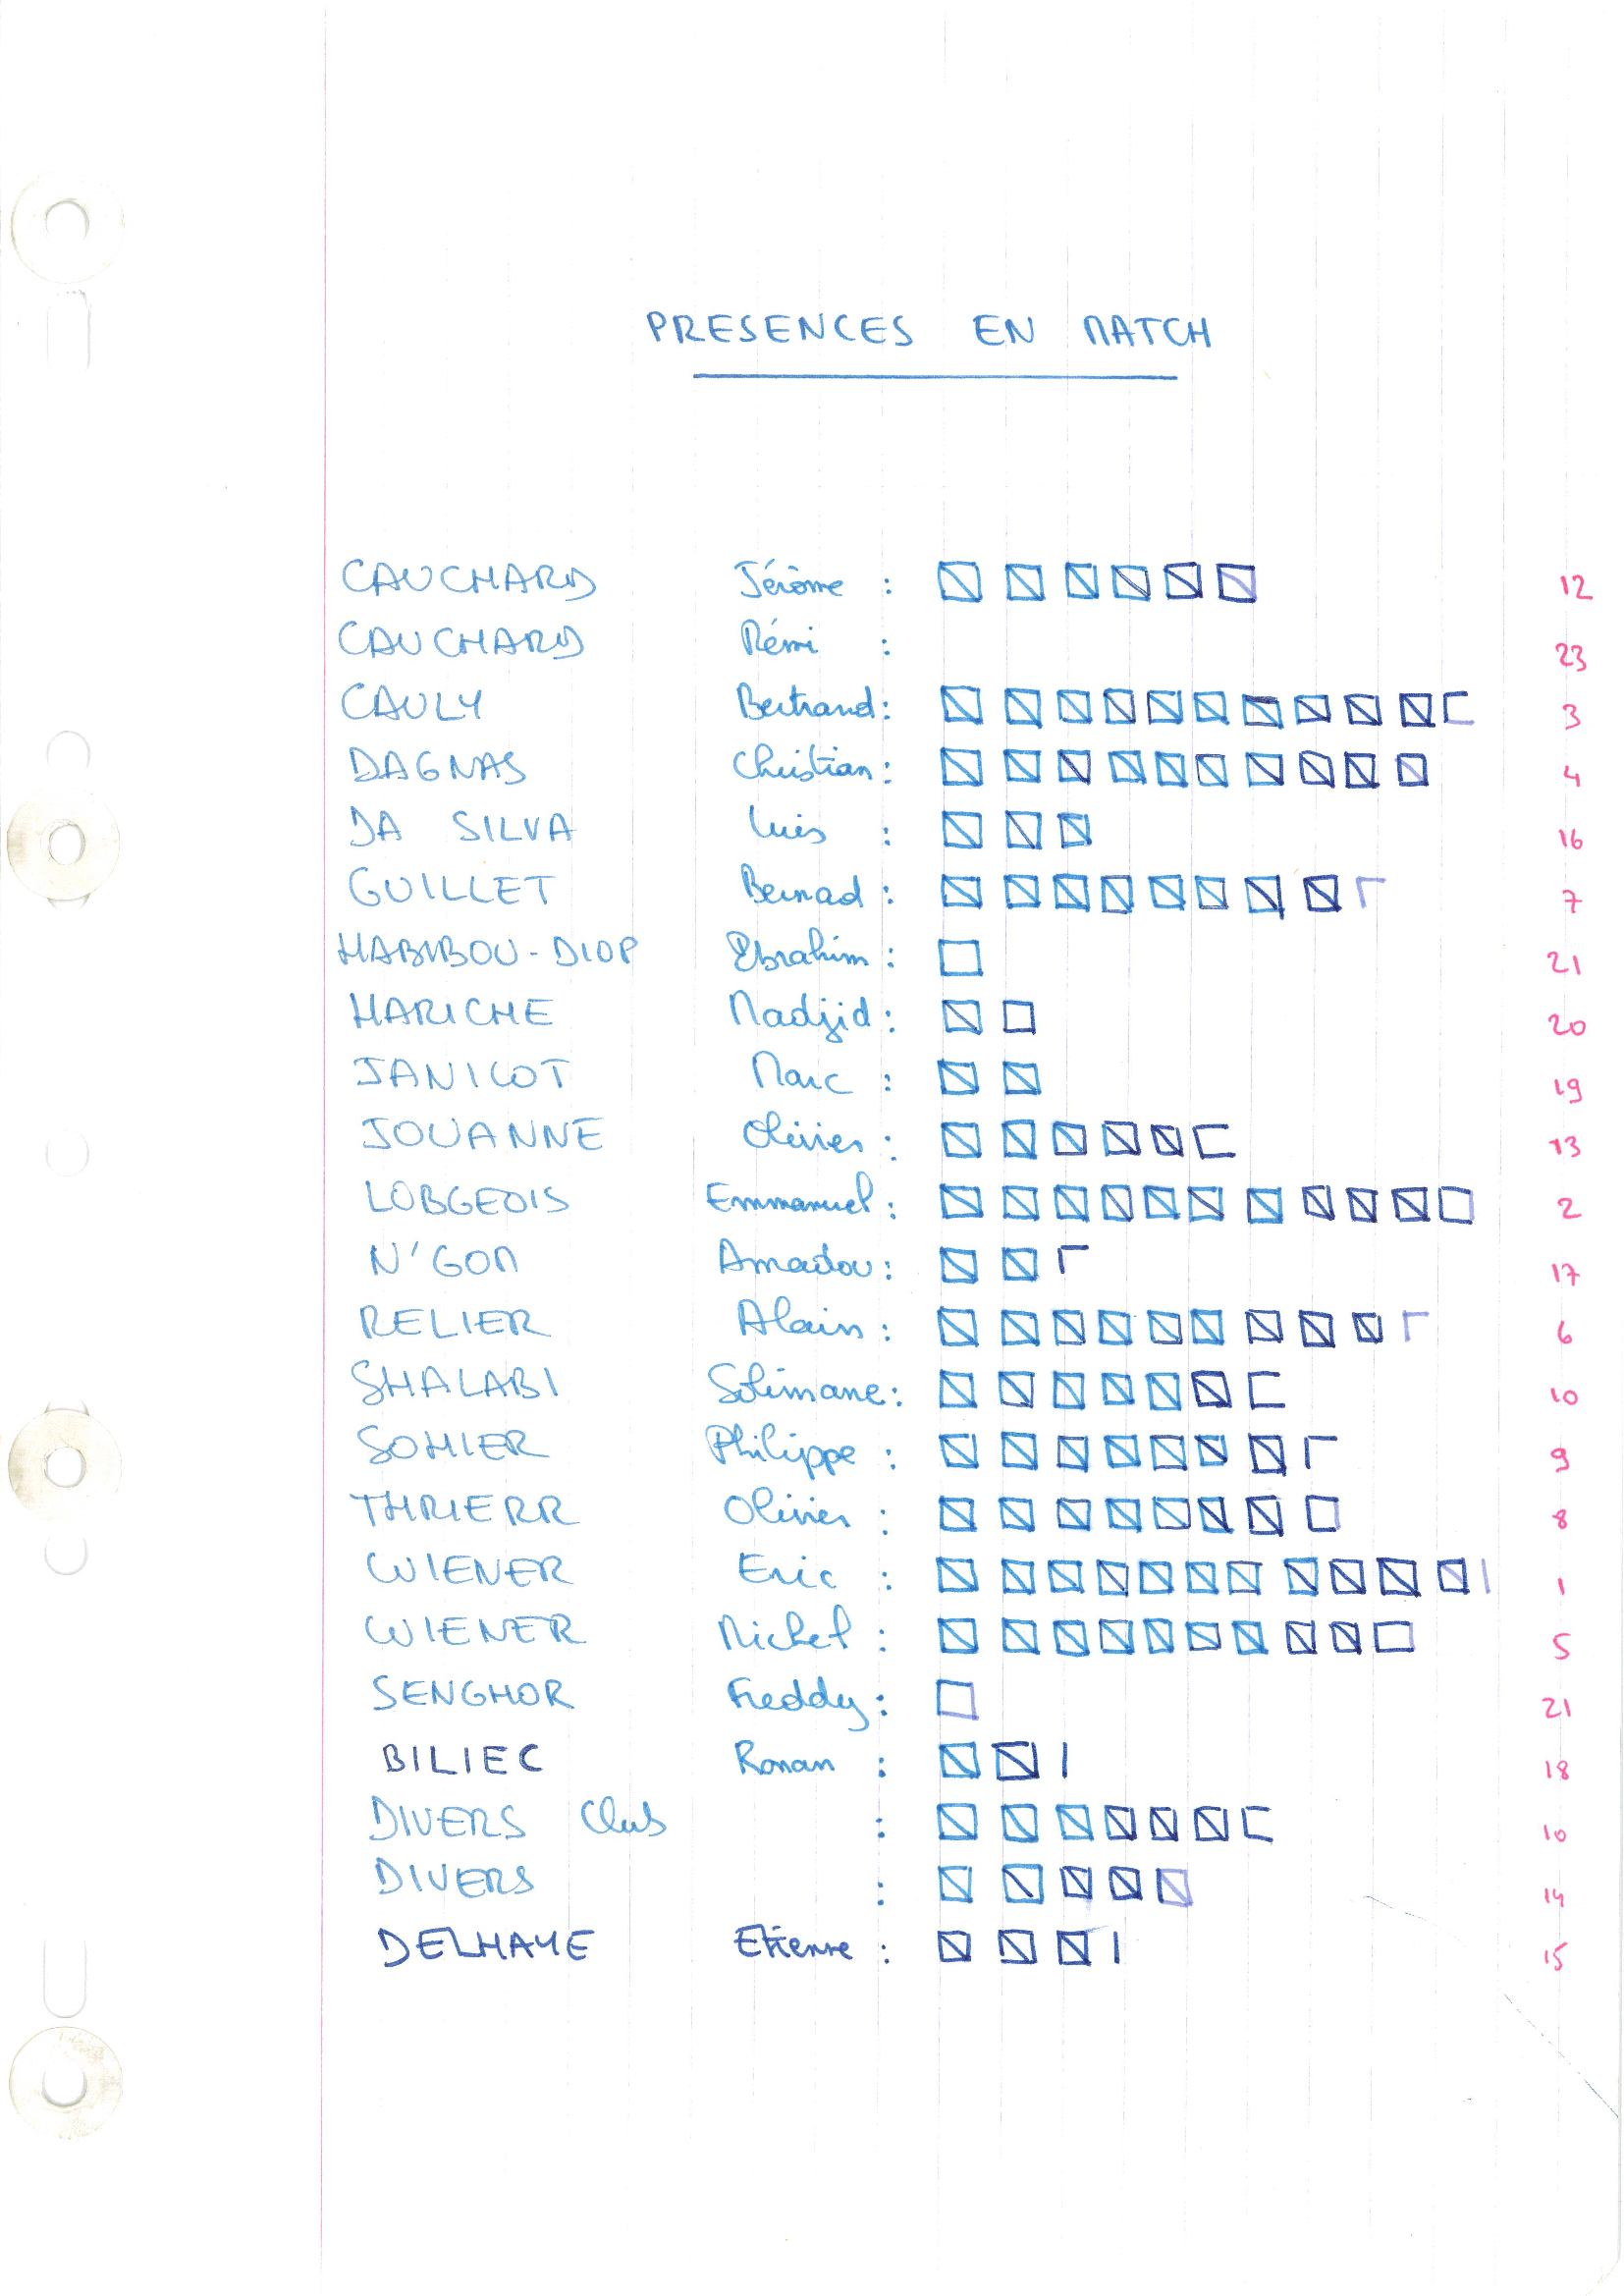 PRESENCES EN MATCH
CAUCHARD Jérôme : 12
CAUCHARD Rémi : 23
CAULY Bertrand : 3
DAGNAS Christian : 4
DA SILVA Luis : 16
GUILLET Bernad : 7
HABIBOU-DIOP Ebrahim : 21
HARICHE Nadjid : 20
JANICOT Marc : 19
JOUANNE Olivier : 13
LOBGEOIS Emmanuel : 2
N'GOM Amadou : 17
RELIER Alain : 6
SHALABI Solimane : 10
SOHIER Philippe : 9
THRIERR Olivier : 8
WIENER Eric : 1
WIENER Michel : 5
SENGHOR Freddy : 21
BILIEC Ronan : 18
DIVERS Club : 10
DIVERS : 14
DELHAYE Etienne : 15